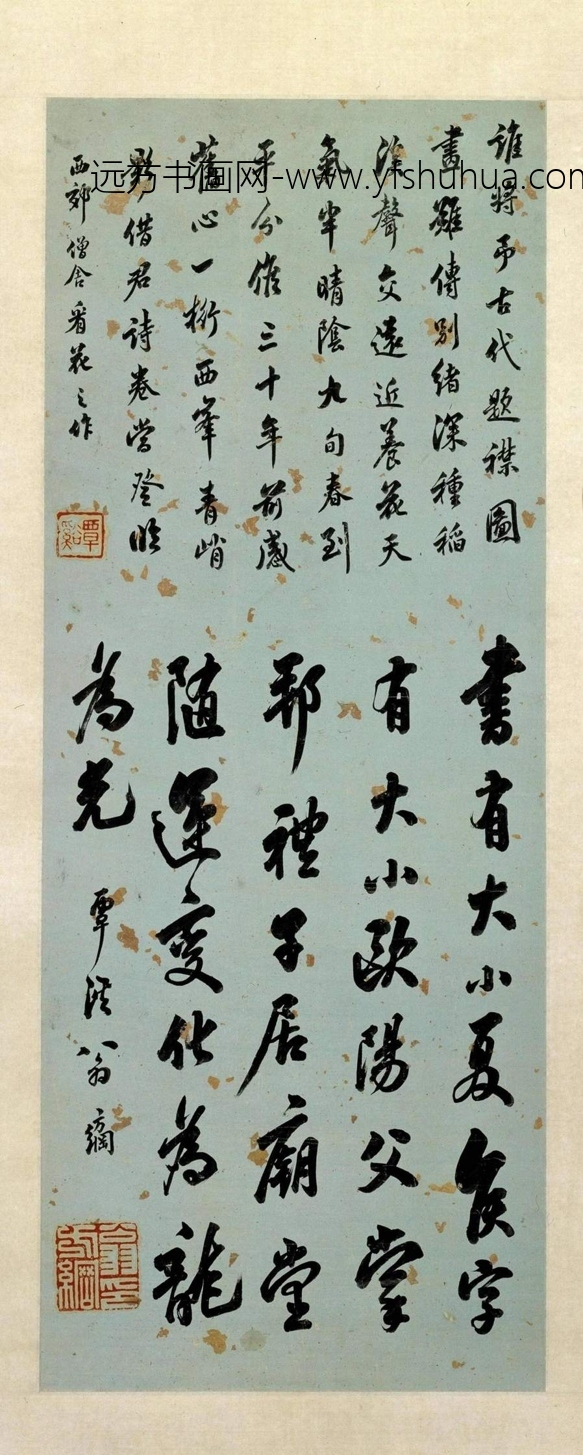 远方书画网-www.yfshuhua.com
誰將弔古代題襟圖
畫雖傳別緒深種稻
聲交遠近養花天
氣半晴陰九旬春到
平分候三十年前感
舊心一桁西峯青峭
影借君詩卷當登臨
西郊僧舍看花之作
覃谿
書有大小夏侯字
有大小歐陽父掌
邦禮子居廟堂
隨運變化為龍
為光
覃溪翁方綱
翁方綱印